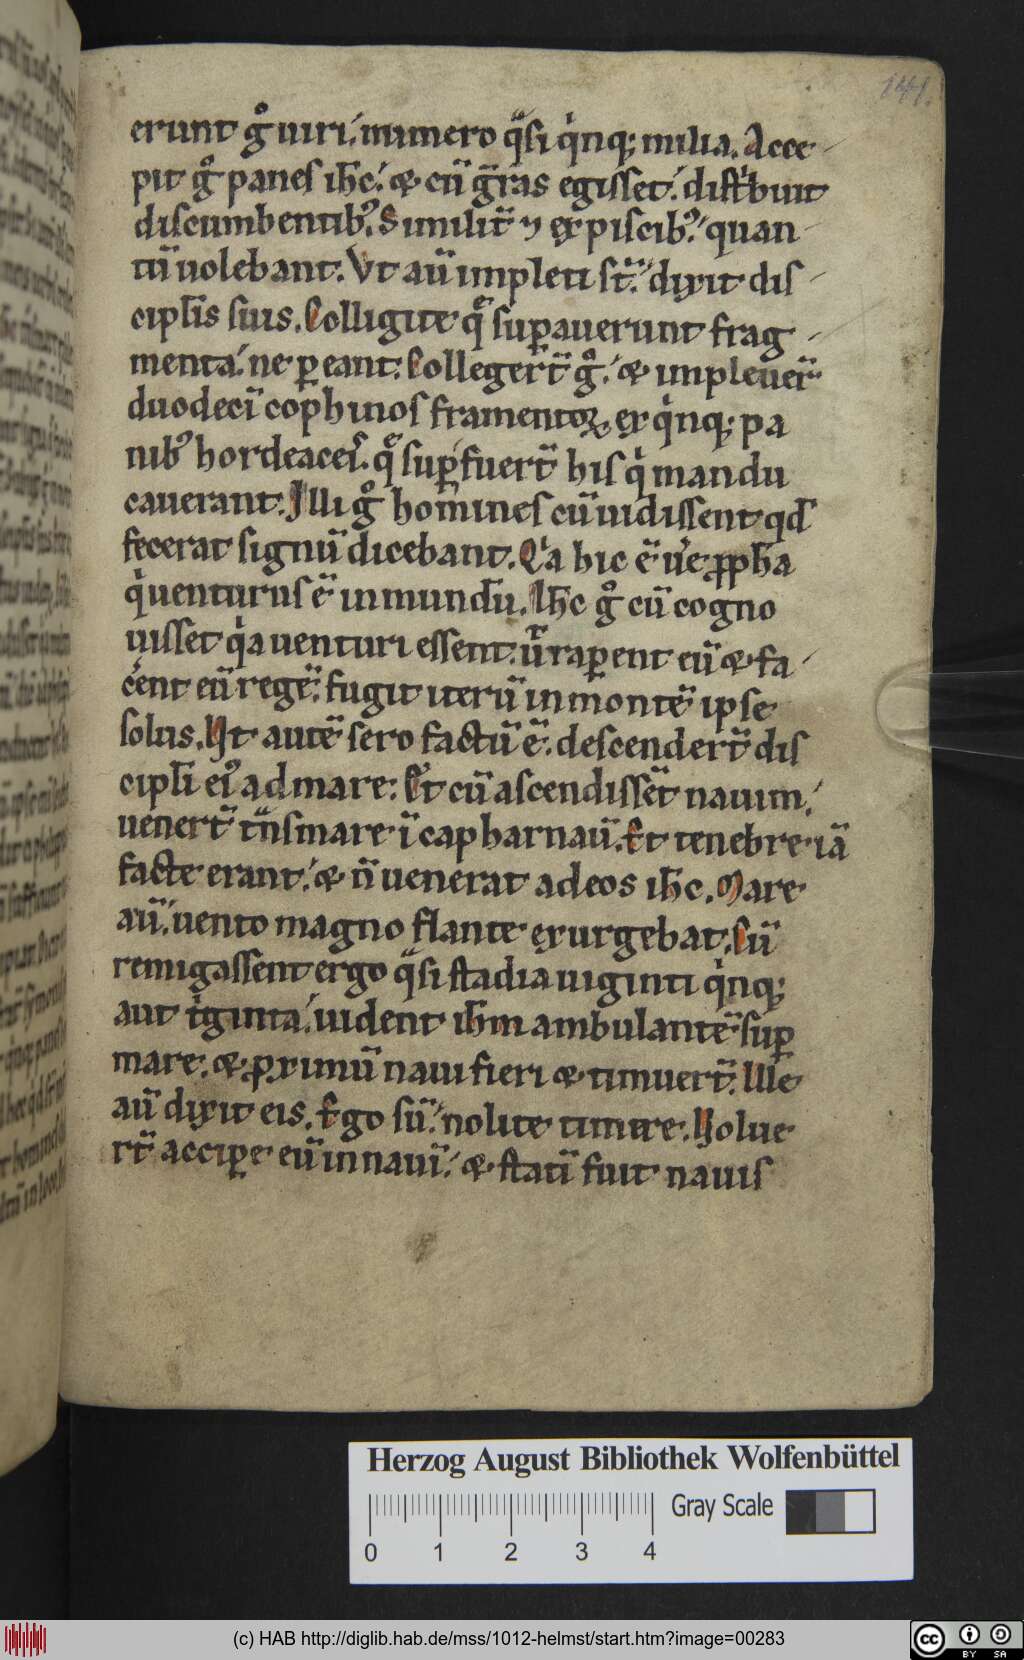 141.
erunt gͦ uiri. numero qͣsi qⁱnq; milia. Acce
pit gͦ panes ih̅c. & cū gr̅as egisset. distⁱbuit
discumbentibꝰ. Similit̅ ⁊ ex piscibꝰ. quan
tū uolebant. Vt aū impleti st̅. dixit dis
cipl̅is suis. Colligite q̄ suꝑauerunt frag
menta. ne ꝑeant. Colleger̅t gͦ. & impleuer̅
duodeci̅ cophinos framentoꝝ ex qⁱnq; pa
nibꝰ hordeaceis. q̄ suꝑfuer̅t his qⁱ mandu
cauerant. Illi gͦ homines cū uidissent qd̅
fecerat signū dicebant. Qⁱa hic ē ue̅ ꝓph̅a
qⁱ uenturus ē in mundū. Ih̅c gͦ cū cogno
uisset qⁱa uenturi essent. ut̅ raꝑent eū & fa
ce̅nt eū regē. fugit iterū in montē ipse
solus. Ut autē sero factū ē. descender̅t dis
cipl̅i eiꝰ ad mare. Et cū ascendissēt nauim.
uener̅t tn̅smare ī capharnaū. Et tenebre iā
facte erant. & n̅ uenerat ad eos ih̅c. Mare
aū. uento magno flante exurgebat. Cū
remigassent ergo qͣsi stadia uiginti qⁱnq;
aut tⁱginta. uident ih̅m ambulantē suꝑ
mare. & ꝓximū naui fieri & timuer̅t. Ille
aū dixit eis. Ego sū. nolite timere. Uolue
rt̅ acciꝑe eū in nauī. & statī fuit nauis
Herzog August Bibliothek Wolfenbüttel
Gray Scale
0 1 2 3 4
(c) HAB http://diglib.hab.de/mss/1012-helmst/start.htm?image=00283
cc BY SA